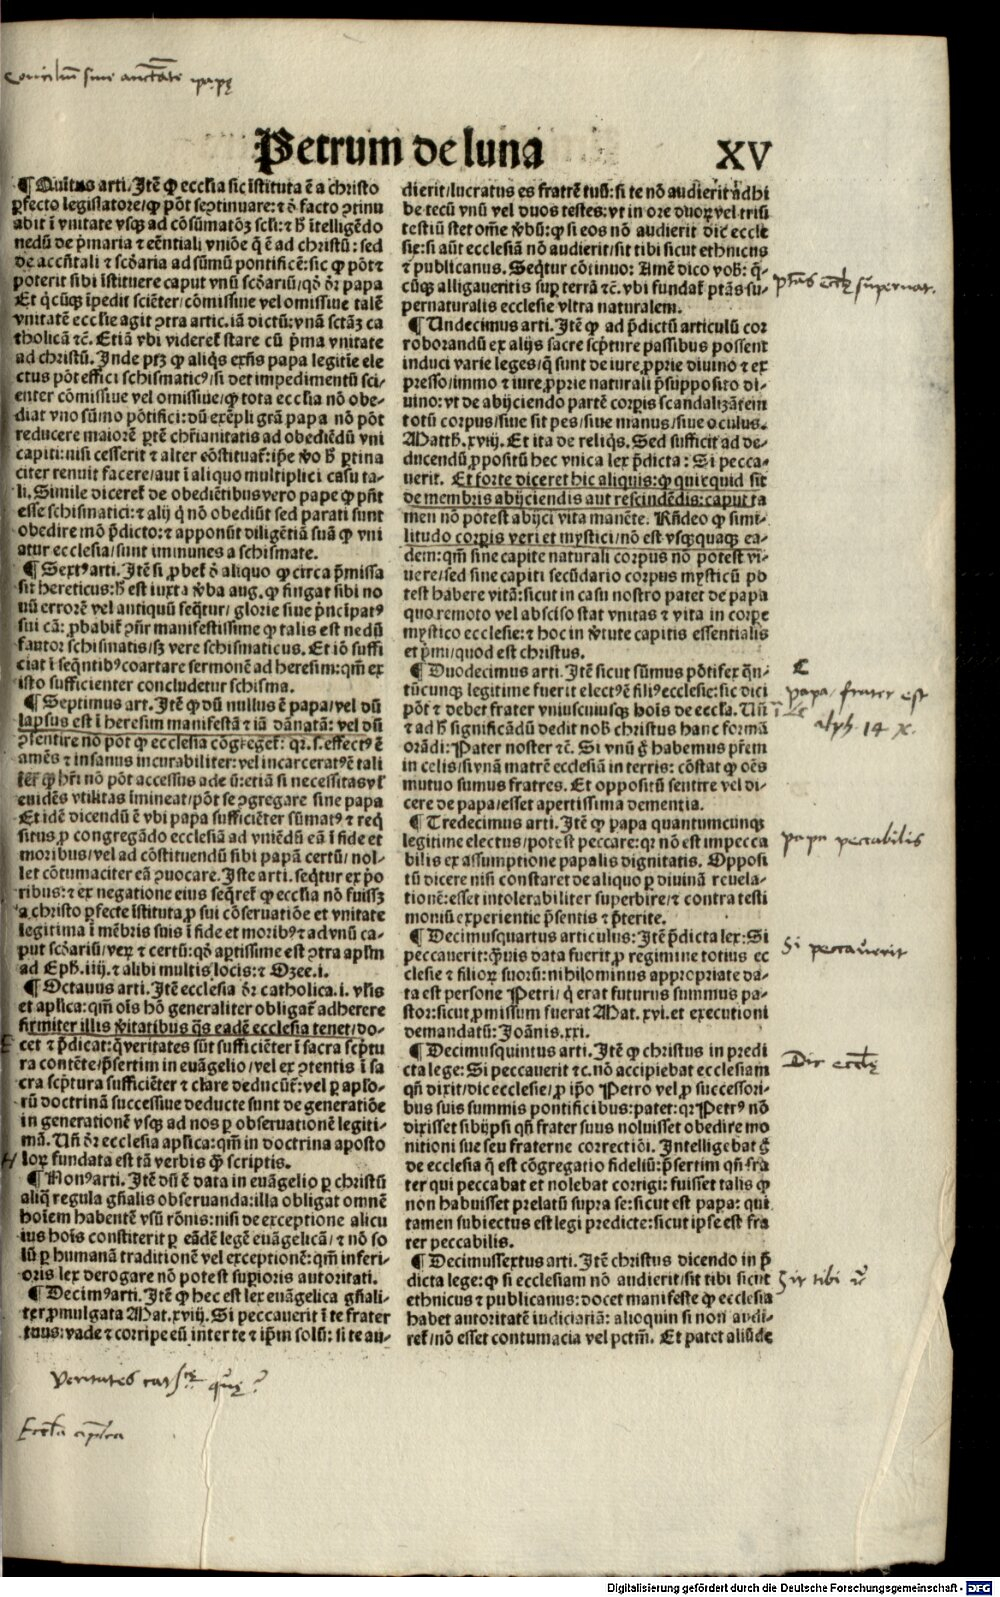 Concilium sine auctate pape
Petrum de luna
XV
¶ Quītus arti. Itē ꝙ ecclia sic īstituta ē a christo
ꝑfecto legislatore/ꝙ pōt se ꝯtinuare: ⁊ ō facto ꝯtinu
abit ī vnitate vsqꝫ ad cōsūmatōꝫ scli: ⁊ ħ ītelligēdo
nedū de p̄maria ⁊ eēntiali vniōe q̄ ē ad christū: sed
de accn̄tali ⁊ scōaria ad sūmū pontificē: sic ꝙ pōt ⁊
poterit sibi īstituere caput vnū scōariū/qō ōr papa
Et q̄cūqꝫ īpedit sciēter/cōmissiue vel omissiue talē
vnitatē ecclie agit ꝯtra artic. iā dictū: vnā sctāꝫ ca
tholicā ⁊c̄. Etiā vbi videreƭ stare cū p̄ma vnitate
ad christū. Inde ptꝫ ꝙ aliq̄s exn̄s papa legitīe ele
ctus pōt effici schismaticꝰ/si det impedimentū sci/
enter cōmissiue vel omissiue/ꝙ tota ecclia nō obe/
diat vno sūmo pōtifici: dū exēpli grā papa nō pōt
reducere maiorē ꝑtē chr̄ianitatis ad obediēdū vni
capiti: nisi cesserit ⁊ alter cōstituaƭ: ip̄e v̄o ħ ꝑtina
citer renuit facere/aut ī aliquo multiplici casu ta/
li. Simile dicereƭ de obediētibus vero pape ꝙ pn̄t
esse schismatici: ⁊ alij q̄ nō obediūt sed parati sunt
obedire mō p̄dicto: ⁊ apponūt diligētiā suā ꝙ vni
atur ecclesia/sunt immunes a schismate.
¶ Sextꝰ arti. Itē si ꝓbeƭ ō aliquo ꝙ circa p̄missa
sit hereticus: ħ est iuxta v̄ba aug. ꝙ fingat sibi no
uū errorē vel antiquū seq̄tur/glorie siue p̄ncipatꝰ
sui cā: ꝓbabiƭ ꝯn̄r manifestissime ꝙ talis est nedū
fautor schismatis/sꝫ vere schismaticus. Et iō suffi
ciat ī seq̄ntibꝰ coartare sermonē ad heresim: qm̄ ex
isto sufficienter concludetur schisma.
¶ Septimus art. Itē ꝙ dū nullus ē papa/vel dū
lapsus est ī heresim manifestā ⁊ iā dānatā: vel dū
ꝯsentire nō pōt ꝙ ecclesia cōgregeƭ: qꝛ .s. effectꝰ ē
amēs ⁊ insanus incurabiliter: vel incarceratꝰ ē tali
ꝙ hr̄i nō pōt accessus ad eū: etiā si necessitas vƚ
euidēs vtilitas īmineat/pōt se ꝯgregare sine papa
Et idē dicendū ē vbi papa sufficiēter sūmatꝰ ⁊ req̄
situs ꝓ congregādo ecclesiā ad vniēdū eā ī fide et
moribus/vel ad cōstituendū sibi papā certū/nol/
let cōtumaciter eā ꝯuocare. Iste arti. seq̄tur ex p̄o
ribus: ⁊ ex negatione eius seq̄reƭ ꝙ ecclia nō fuissꝫ
a christo ꝑfecte īstituta ꝓ sui cōseruatiōe et vnitate
legitima ī mēbris suis ī fide et moribꝰ ⁊ ad vnū ca/
put scōariū/veꝝ ⁊ certū: qō aꝑtissime est ꝯtra apl̄m
ad Eph. iiij. ⁊ alibi multis locis: ⁊ Ozee. i.
¶ Octauus arti. Itē ecclesia ōr catholica .i. vl̄is
et aplica: qm̄ oīs hō generaliter obligaƭ adherere
firmiter illis v̄itatibus q̄s eadē ecclesia tenet/do/
cet ⁊ p̄dicat: q̄ veritates sūt sufficiēter ī sacra scp̄tu
ra contēte/p̄sertim in euāgelio/vel ex ꝯtentis ī sa
cra scp̄tura sufficiēter ⁊ clare deducūƭ: vel ꝑ aplo/
rū doctrinā successiue deducte sunt de generatiōe
in generationē vsqꝫ ad nos ꝑ obseruationē legiti/
mā. Vn̄ ōr ecclesia aplica: qm̄ in doctrina aposto
loꝝ fundata est tā verbis q̄ꝫ scriptis.
¶ Nonꝰ arti. Itē dū ē data in euāgelio ꝑ christū
aliq̄ regula gn̄alis obseruanda: illa obligat omnē
hoīem habentē vsū rōnis: nisi de exceptione alicu
ius hoīs constiterit ꝑ eādē legē euāgelicā/⁊ nō so
lū ꝑ humanā traditionē vel exceptionē: qm̄ inferi/
oris lex derogare nō potest suꝑioris autoritati.
¶ Decimꝰ arti. Itē ꝙ hec est lex euāgelica gn̄ali/
ter ꝓmulgata Mat. xviij. Si peccauerit ī te frater
tuus: vade ⁊ corripe eū inter te ⁊ ip̄m solū: si te au/
dierit/lucratus es fratrē tuū: si te nō audierit adhi
be tecū vnū vel duos testes: vt in ore duoꝝ vel triū
testiū stet om̄e v̄bū: ꝙ si eos nō audierit dic eccle
sie: si aūt ecclesiā nō audierit/sit tibi sicut ethnicus
⁊ publicanus. Seq̄tur cōtinuo: Amē dico vob̄: q̄/
cūqꝫ alligaueritis suꝑ terrā ⁊c̄. vbi fundaƭ ptās su/
pernaturalis ecclesie vltra naturalem.
¶ Undecimus arti. Itē ꝙ ad p̄dictū articulū cor
roborandū ex alijs sacre scp̄ture passibus possent
induci varie leges/q̄ sunt de iure ꝓprie diuino ⁊ ex
presso/immo ⁊ iure ꝓprie naturali p̄supposito di/
uino: vt de abijciendo partē corꝑis scandalizātem
totū corpus/siue sit pes/siue manus/siue oculus.
Matth. xviij. Et ita de reliq̄s. Sed sufficit ad de/
ducendū ꝓpositū hec vnica lex p̄dicta: Si pecca/
uerit. Et forte diceret hic aliquis: ꝙ quicquid sit
de membris abijciendis aut rescindēdis: caput ta
men nō potest abijci vita manēte. Rn̄deo ꝙ simi/
litudo corꝑis veri et mystici/nō est vsq̄quaqꝫ ea/
dem: qm̄ sine capite naturali corpus nō potest vi/
uere/sed sine capiti secūdario corpus mysticū po
test habere vitā: sicut in casu nostro patet de papa
quo remoto vel absciso stat vnitas ⁊ vita in corꝑe
mystico ecclesie: ⁊ hoc in v̄tute capitis essentialis
et p̄mi/quod est christus.
¶ Duodecimus arti. Itē sicut sūmus pōtifex q̄n/
tūcunqꝫ legitime fuerit electꝰ ē filiꝰ ecclesie: sic dici
pōt ⁊ debet frater vniuscuiusqꝫ hoīs de eccl̄a. Vn̄
⁊ ad ħ significādū dedit nob̄ christus hanc formā
orādi: Pater noster ⁊c̄. Si vnū g̊ habemus pr̄em
in celis/si vnā matrē ecclesiā in terris: cōstat ꝙ oēs
mutuo sumus fratres. Et oppositū sentire vel di/
cere de papa/esset apertissima dementia.
¶ Tredecimus arti. Itē ꝙ papa quantumcunqꝫ
legitime electus/potest peccare: qꝛ nō est impecca
bilis ex assumptione papalis dignitatis. Opposi
tū dicere nisi constaret de aliquo ꝑ diuinā reuela/
tionē: esset intolerabiliter superbire/⁊ contra testi
moniū experientie p̄sentis ⁊ p̄terite.
¶ Decimusquartus articulus: Itē p̄dicta lex: Si
peccauerit: q̄uis data fuerit ꝓ regimine totius ec
clesie ⁊ filioꝝ suorū: nihilominus appropriate da/
ta est persone Petri/q̄ erat futurus summus pa/
stor: sicut ꝓmissum fuerat Mat. xvi. et executioni
demandatū: Joānis. xxi.
¶ Decimusquintus arti. Itē ꝙ christus in predi
cta lege: Si peccauerit ⁊c. nō accipiebat ecclesiam
qn̄ dixit/dic ecclesie/ꝓ ip̄o Petro vel ꝓ successori/
bus suis summis pontificibus: patet: qꝛ Petrꝰ nō
dixisset sibijpsi qn̄ frater suus noluisset obedire mo
nitioni siue seu fraterne correctiōi. Intelligebat g̊
de ecclesia q̄ est cōgregatio fideliū: p̄sertim qn̄ fra
ter qui peccabat et nolebat corrigi: fuisset talis ꝙ
non habuisset prelatū supra se: sicut est papa: qui
tamen subiectus est legi predicte: sicut ipse est fra
ter peccabilis.
¶ Decimussextus arti. Itē christus dicendo in p̄
dicta lege: ꝙ si ecclesiam nō audierit/sit tibi sicut
ethnicus ⁊ publicanus: docet manifeste ꝙ ecclesia
habet autoritatē iudiciariā: alioquin si non audi/
reƭ/nō esset contumacia vel pctm̄. Et patet aliūde
ptās eccłę supernat.
papa/frater est
papa peccabilis
Si peccauerit
Dic eccłę
Sit tibi
Veritates cathcę quę?
Eccła aplica
Digitalisierung gefördert durch die Deutsche Forschungsgemeinschaft - DFG